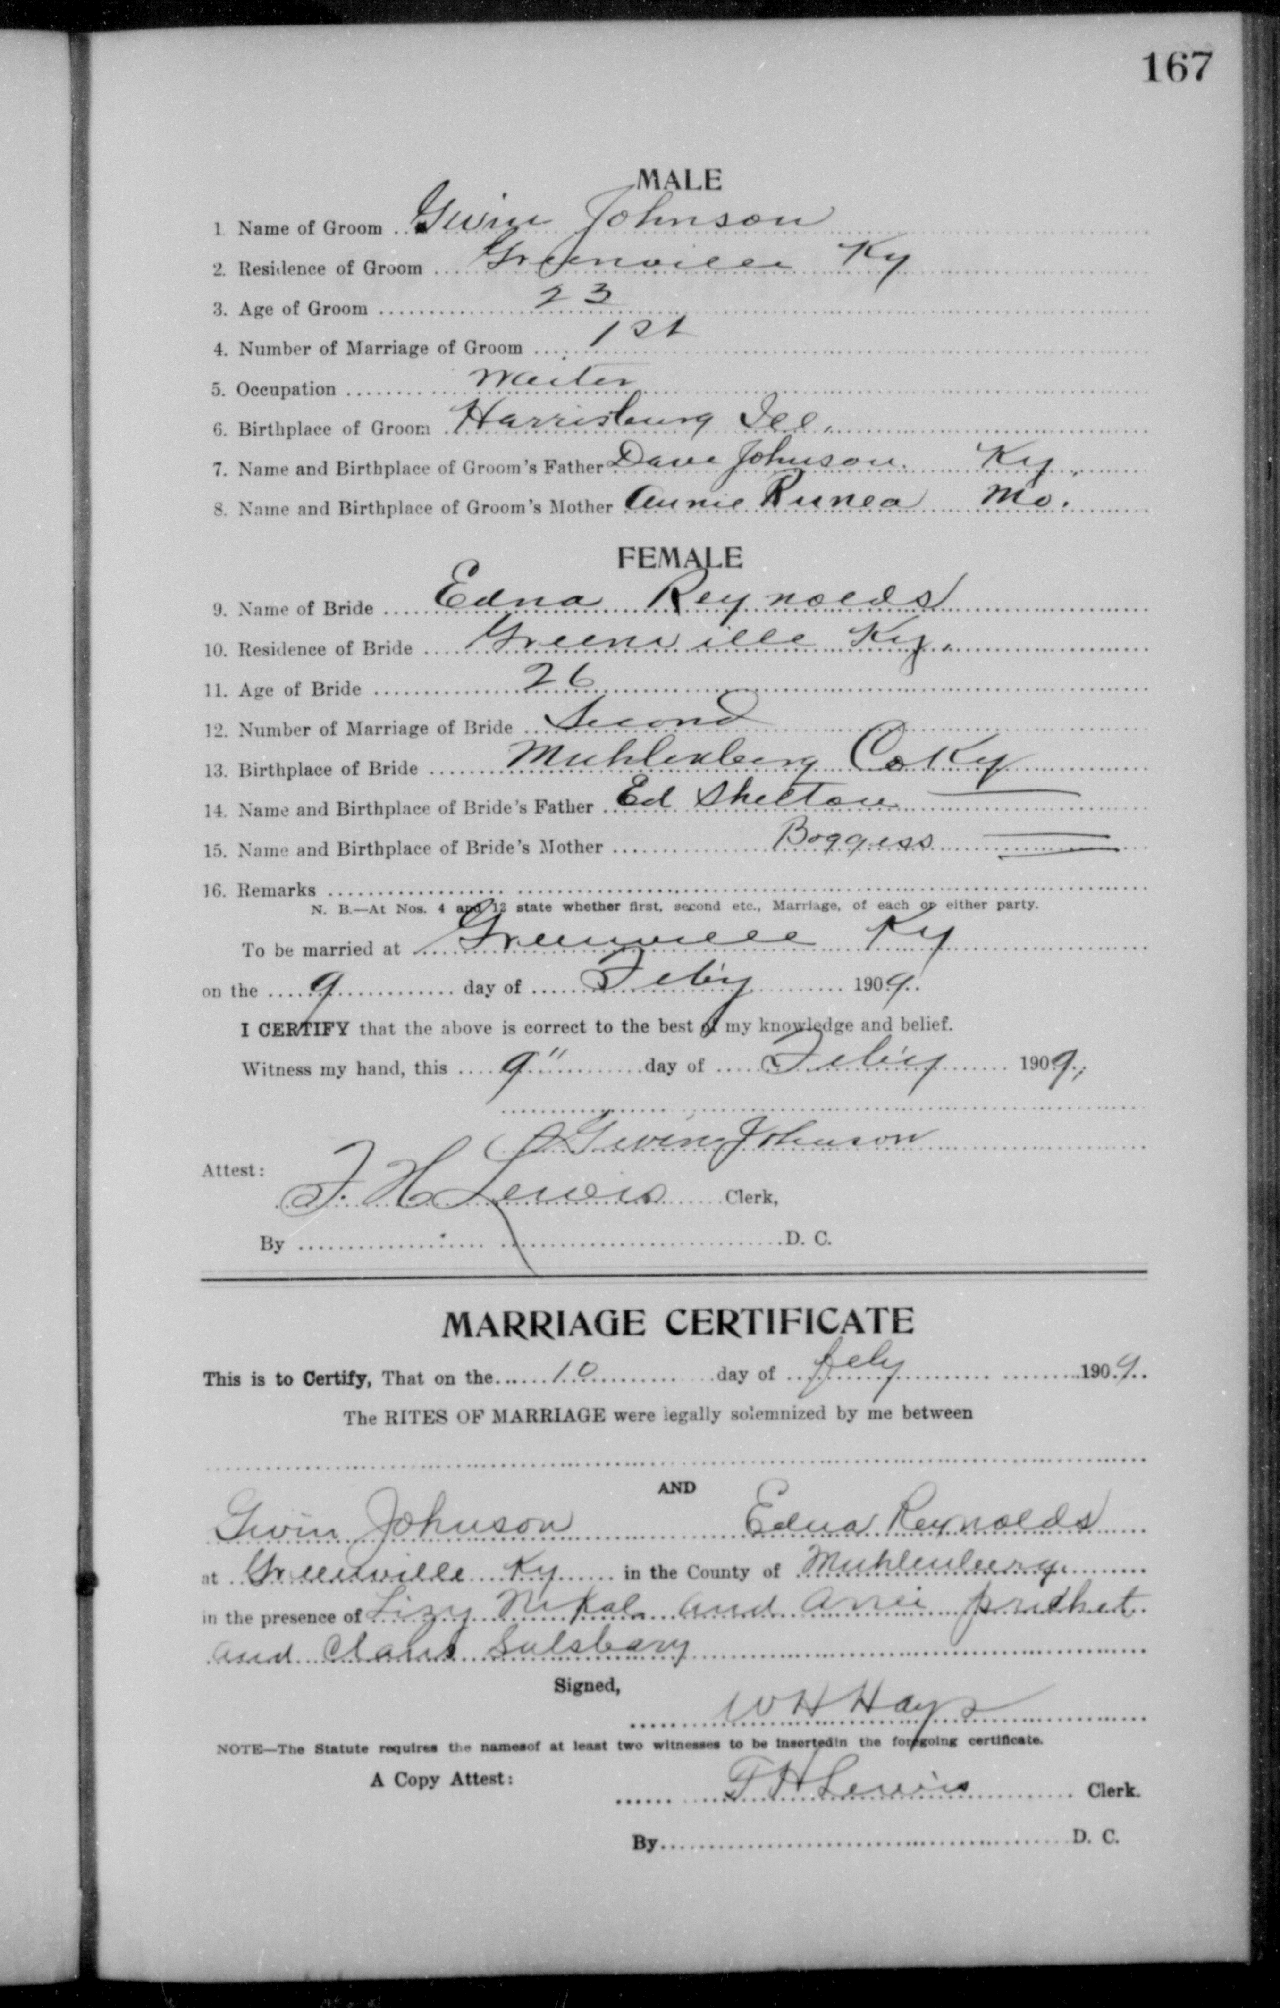 167
MALE
1 Name of Groom Gwin Johnson
2. Residence of Groom Greenville Ky
3. Age of Groom 23
4. Number of Marriage of Groom 1st
5. Occupation Waiter
6. Birthplace of Groom Harrisburg Ill.
7. Name and Birthplace of Groom's Father Dave Johnson. Ky.
8. Name and Birthplace of Groom's Mother Annie Mo.
FEMALE
9. Name of Bride Edna Reynolds
10. Residence of Bride Greenville Ky.
11. Age of Bride 26
12. Number of Marriage of Bride Second
13. Birthplace of Bride Muhlenberg Co Ky
14. Name and Birthplace of Bride's Father Ed Shelton —
15. Name and Birthplace of Bride's Mother Boggess —
16. Remarks
N. B.—At Nos. 4 and 12 state whether first, second etc., Marriage, of each or either party.
To be married at Greenville Ky
on the 9 day of Feb'y 1909.
I CERTIFY that the above is correct to the best of my knowledge and belief.
Witness my hand, this 9" day of Feb'y 1909,
Gwin Johnson
Attest:
T. H Lewis Clerk,
By D. C.
MARRIAGE CERTIFICATE
This is to Certify, That on the 10 day of feby 1909.
The RITES OF MARRIAGE were legally solemnized by me between
AND
Gwin Johnson Edna Reynolds
at Greenville Ky in the County of Muhlenberg
in the presence of Lizy and
and Sulsbary
Signed,
W H Hays
NOTE—The Statute requires the namesof at least two witnesses to be insertedin the foregoing certificate.
A Copy Attest:
T H Lewis Clerk.
By D. C.